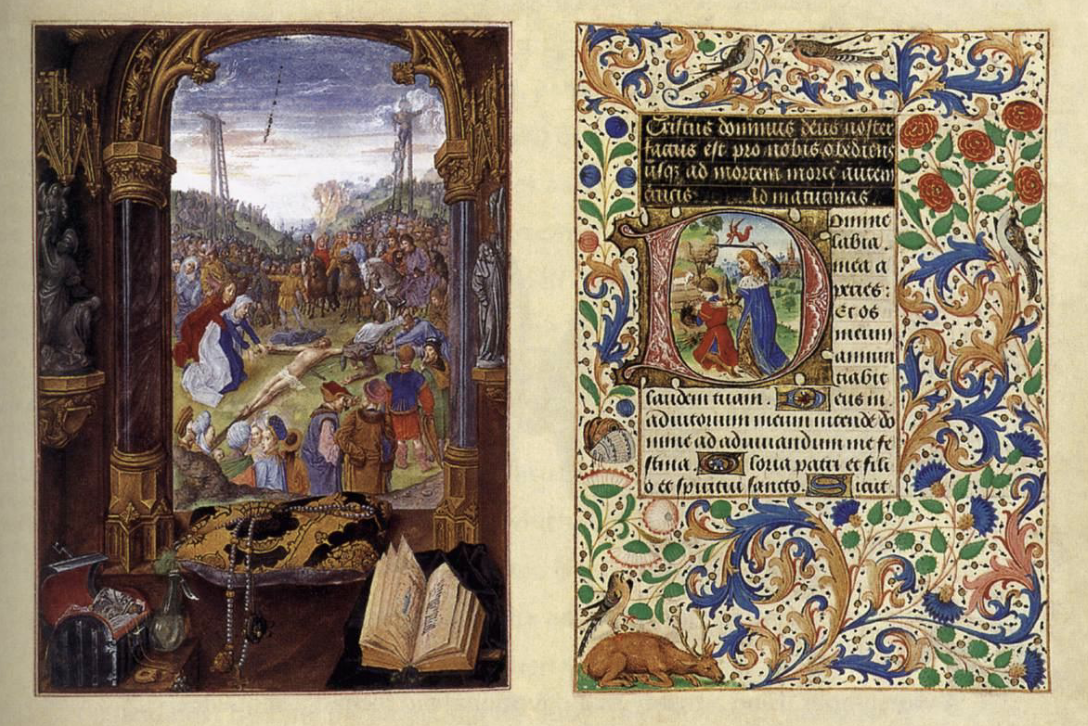 Cristus dominus deus noster
factus est pro nobis obediens
usqꝫ ad mortem mortē autem
crucis. Ad matutinas.
Domine
labia
mea a
peries:
Et os
meum
annun
tiabit
laudem tuam. Deus in
adiutorium meum intende do
mine ad adiuuandum me fe
stina. Gloria patri et fili
o et spiritui sancto. Sicut